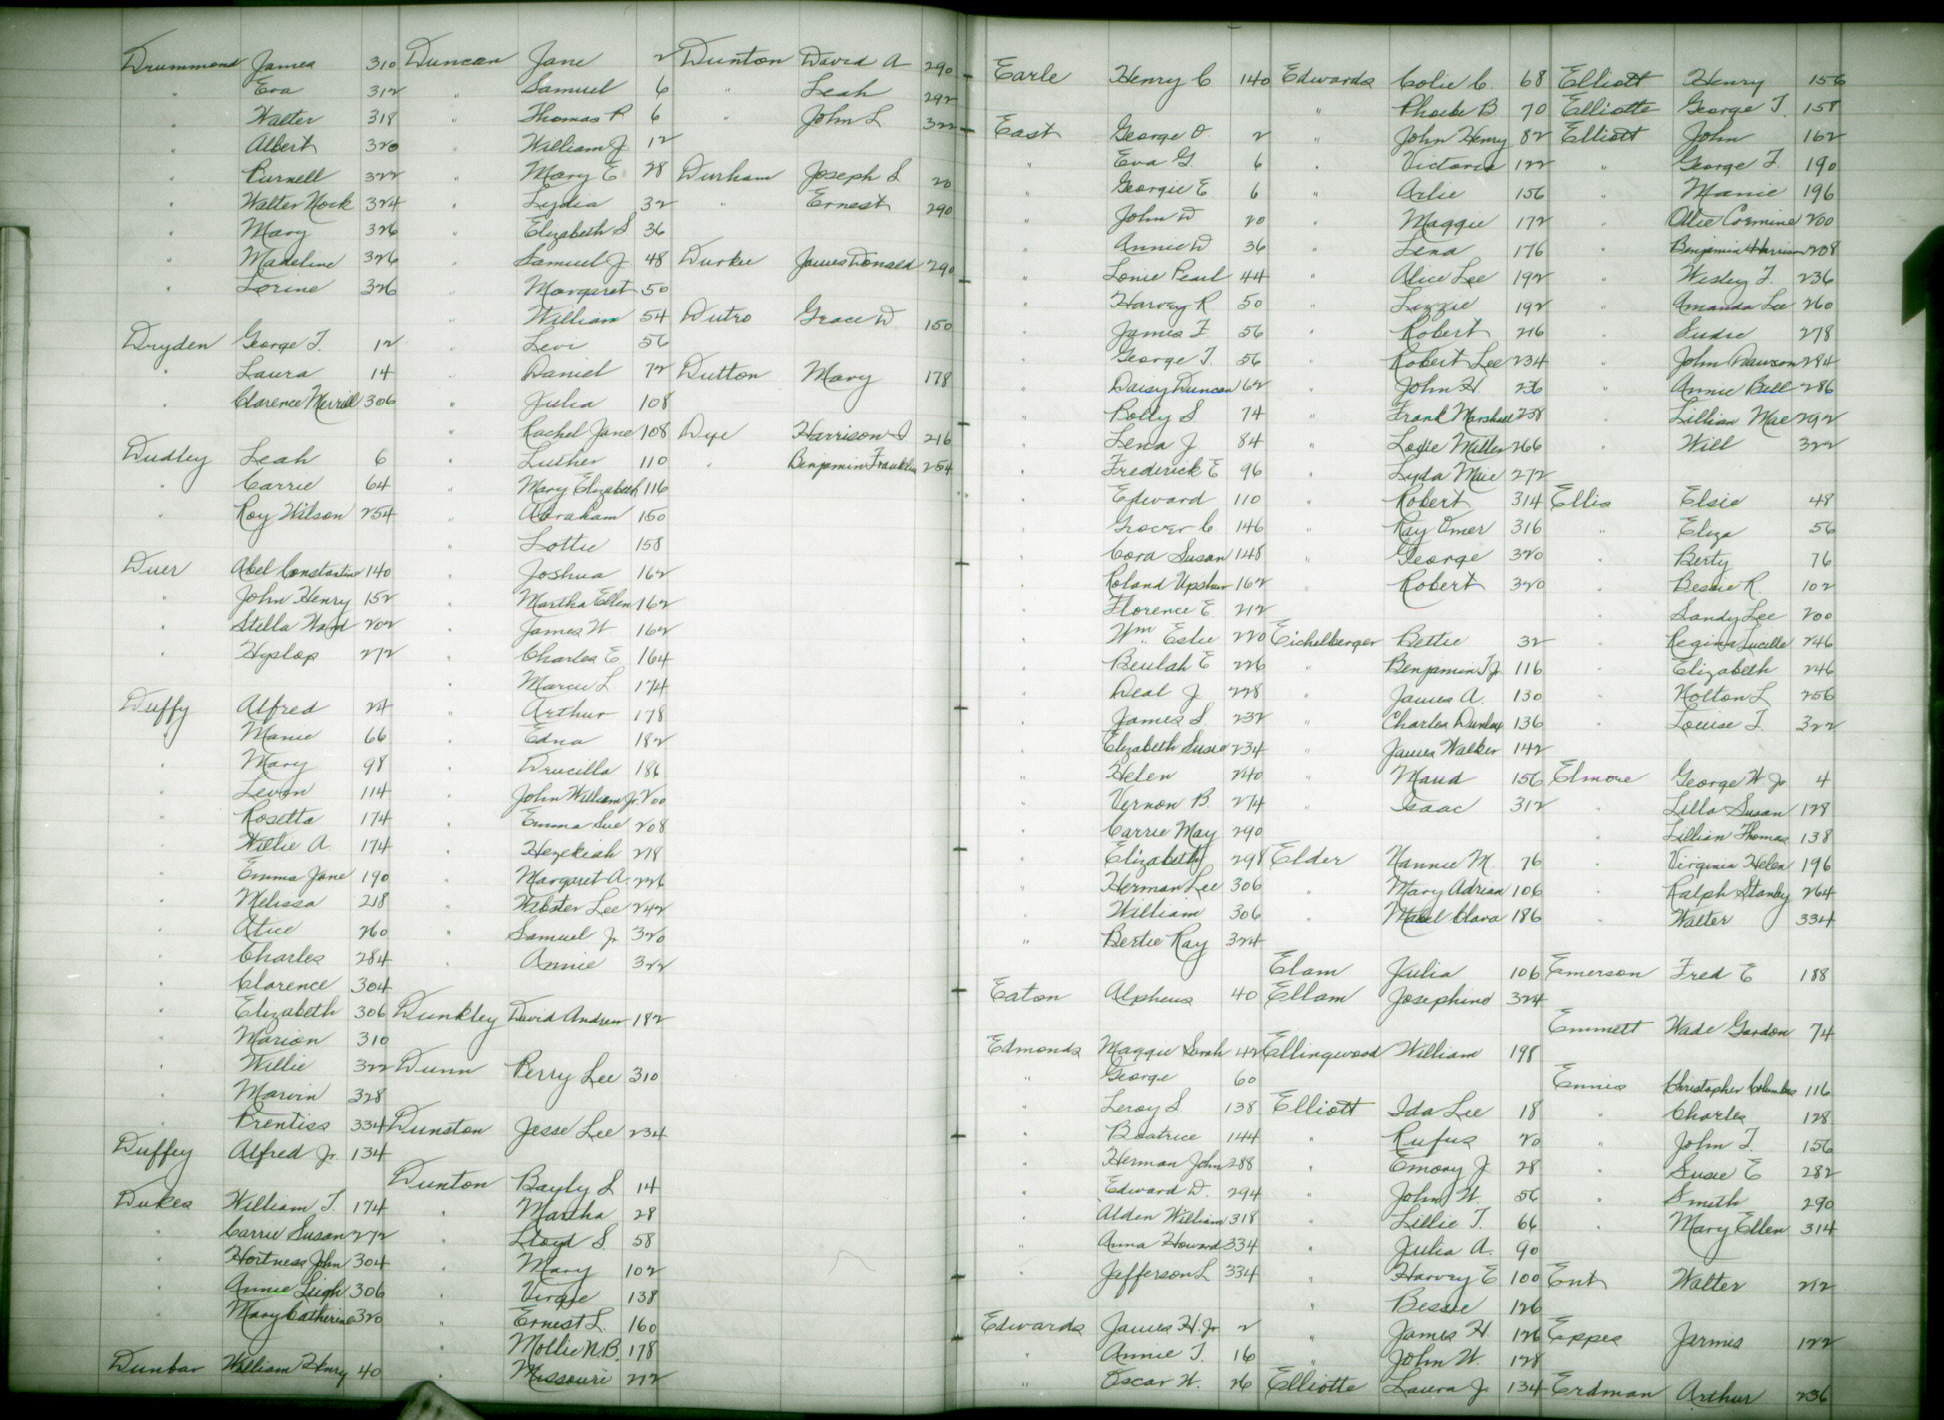 Drummond James 310
" Eva 312
" Walter 318
" Albert 320
" Purnell 322
" Walter Nock 324
" Mary 326
" Madeline 326
" Lorine 326
Dryden George T. 12
" Laura 14
" Clarence Merrill 306
Dudley Leah 6
" Carrie 64
" Roy Wilson 254
Duer Abel Constantine 140
" John Henry 152
" Stella Ward 202
" Hyslop 272
Duffy Alfred 24
" Mamie 66
" Mary 98
" Levin 114
" Rosetta 174
" Willie A 174
" Emma Jane 190
" Melissa 218
" Alice 260
" Charles 284
" Clarence 304
" Elizabeth 306
" Marion 310
" Willie 322
" Marvin 328
" Prentiss 334
Duffey Alfred Jr. 134
Dukes William T. 174
" Carrie Susan 272
" Hortness John 304
" Annie Leigh 306
" Mary Catherine 320
Dunbar William Henry 40
Duncan Jane 2
" Samuel 6
" Thomas P. 6
" William J. 12
" Mary E 28
" Lydia 32
" Elizabeth S 36
" Samuel J. 48
" Margaret 50
" William 54
" Levi 56
" Daniel 72
" Julia 108
" Rachel Jane 108
" Luther 110
" Mary Elizabeth 116
" Abraham 150
" Lottie 158
" Joshua 162
" Martha Ellen 162
" James W 162
" Charles E 164
" Marcu L 174
" Arthur 178
" Edna 182
" Drucilla 186
" John William Jr. 200
" Emma Sue 208
" Hezekiah 218
" Margaret A. 226
" Webster Lee 242
" Samuel Jr 320
" Annie 322
Dunkley David Andrew 182
Dunn Perry Lee 310
Dunston Jesse Lee 234
Dunton Bayly S 14
" Martha 28
" Lloyd S. 58
" Mary 102
" Virgie 138
" Ernest L. 160
" Mollie N.B. 178
" Missouri 212
Dunton David A 290
" Leah 292
" John L 322
Durham Joseph S 20
" Ernest 290
Durkee James Donald 290
Dutro Grace W 150
Dutton Mary 178
Dye Harrison I 216
" Benjamin Franklin 254
Earle Henry C 140
East George O. 2
" Eva G. 6
" Georgie E 6
" John W 20
" Annie W 36
" Lonie Pearl 44
" Harvey R 50
" James F 56
" George T. 56
" Daisy Duncan 62
" Polly S 74
" Lena J 84
" Frederick E 96
" Edward 110
" Grover C 146
" Cora Susan 148
" Roland Upshur 162
" Florence E 212
" Wm Eslie 220
" Beulah E 226
" Deal J 228
" James S. 232
" Elizabeth Susie 234
" Helen 240
" Vernon B. 274
" Carrie May 290
" Elizabeth 298
" Herman Lee 306
" William 306
" Bertie Ray 324
Eaton Alpheus 40
Edmonds Maggie Sarah 42
" George 60
" Leroy S 138
" Beatrice 144
" Herman John 288
" Edward W. 294
" Alden William 318
" Anna Howard 334
" Jefferson L 334
Edwards James H. Jr. 2
" Annie T. 16
" Oscar W. 26
Edwards Colie C. 68
" Phoebe B 70
" John Henry 82
" Victoria 122
" Arlie 156
" Maggie 172
" Lena 176
" Alice Lee 192
" Lizzie 192
" Robert 216
" Robert Lee 234
" John H. 236
" Frank Marshall 258
" Lodie Miller 266
" Lyda Maie 272
" Robert 314
" Ray Omer 316
" George 320
" Robert 320
Eichelberger Bettie 32
" Benjamin T Jr 116
" James A. 130
" Charles Dunlap 136
" James Walker 142
" Maud 156
" Isaac 312
Elder Nannie M. 76
" Mary Adrian 106
" Mabel Clara 186
Elam Julia 106
Ellam Josephine 324
Ellingwood William 198
Elliott Ida Lee 18
" Rufus 20
" Emory J 28
" John W. 56
" Lillie T. 66
" Julia A. 90
" Harvey E 100
" Bessie 126
" James H. 126
" John W. 128
Elliotte Laura J. 134
Elliott Henry 156
Elliotte George T. 158
Elliott John 162
" George T. 190
" Mamie 196
" Ollie Cosmine 200
" Benjamin Harrison 208
" Wesley T. 236
" Amanda Lee 260
" Sudie 278
" John Dawson 284
" Annie Bell 286
" Lillian Mae 292
" Will 322
Ellis Elsie 48
" Eliza 56
" Berty 76
" Bessie R. 102
" Sandy Lee 200
" Regina Lucille 246
" Elizabeth 246
" Holton L 256
" Louise T. 322
Elmore George W Jr 4
" Lilla Susan 128
" Lillian Thomas 138
" Virginia Helen 196
" Ralph Stanley 264
" Walter 334
Emerson Fred E 188
Emmett Wade Gordon 74
Ennis Christopher Columbus 116
" Charles 128
" John T. 156
" Susie E 282
" Smith 290
" Mary Ellen 314
Ent Walter 212
Eppes Jarmis 122
Erdman Arthur 236